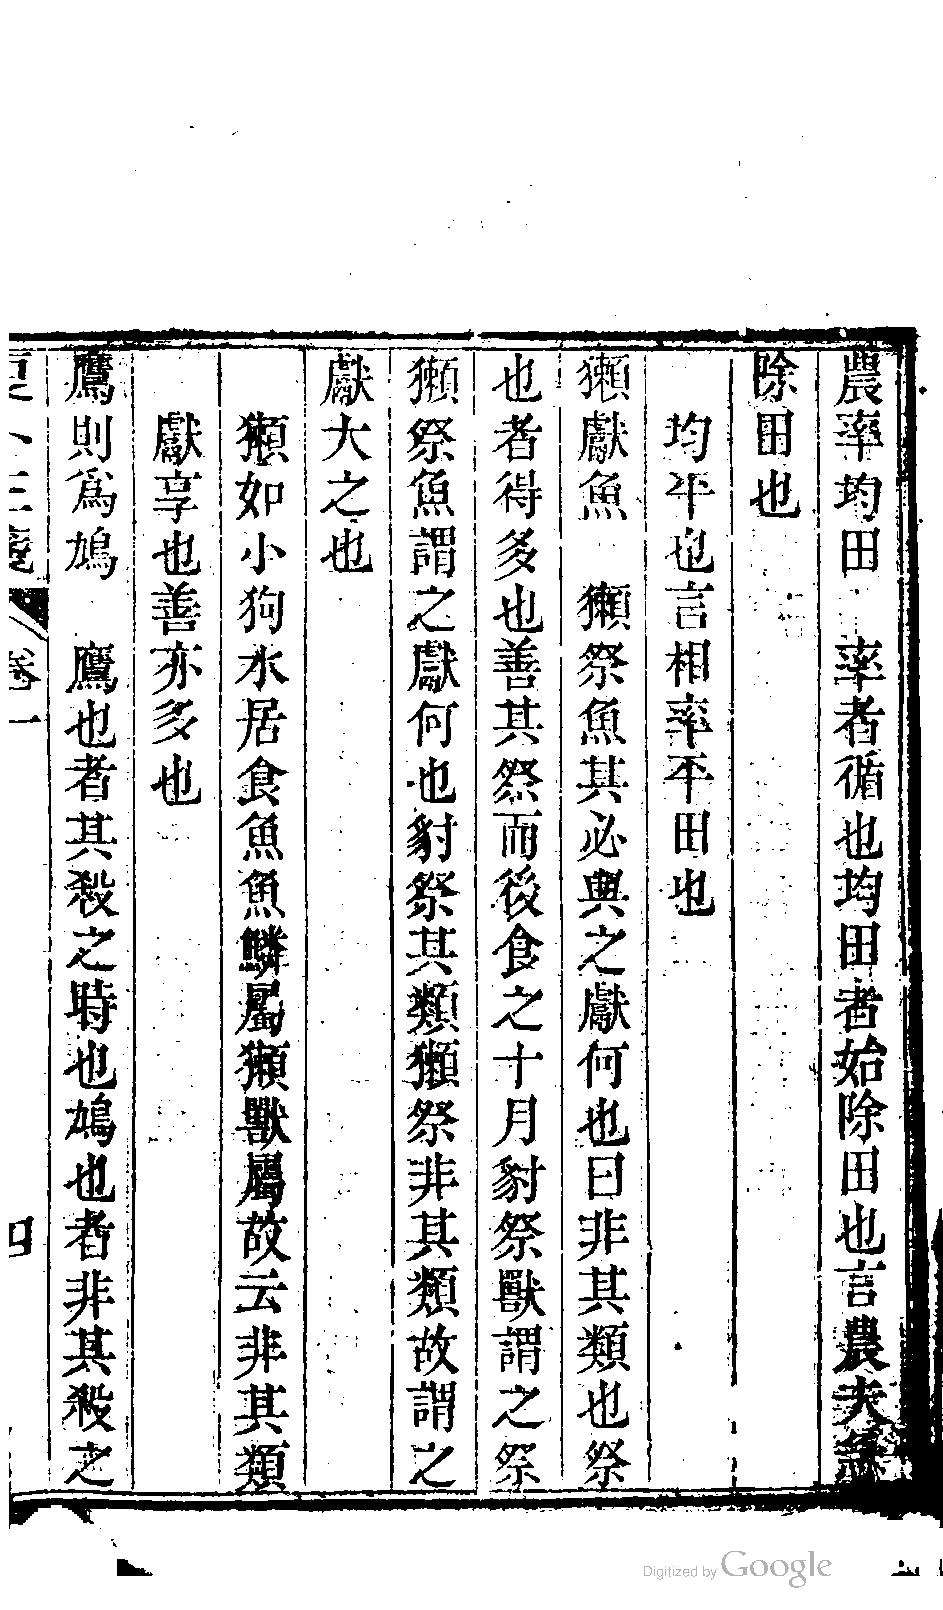 農率均田　率者循也均田者始除田也言農夫
除田也
均平也言相率平田也
獺獻魚　獺祭魚其必與之獻何也曰非其類也祭
也者得多也善其祭而後食之十月豺祭獸謂之祭
獺祭魚謂之獻何也豺祭其類獺祭非其類故謂之
獻大之也
獺如小狗水居食魚魚鱗屬獺獸屬故云非其類
獻享也善亦多也
鷹則為鳩　鷹也者其殺之時也鳩也者非其殺之
夏小正箋　卷一　四
Digitized by Google